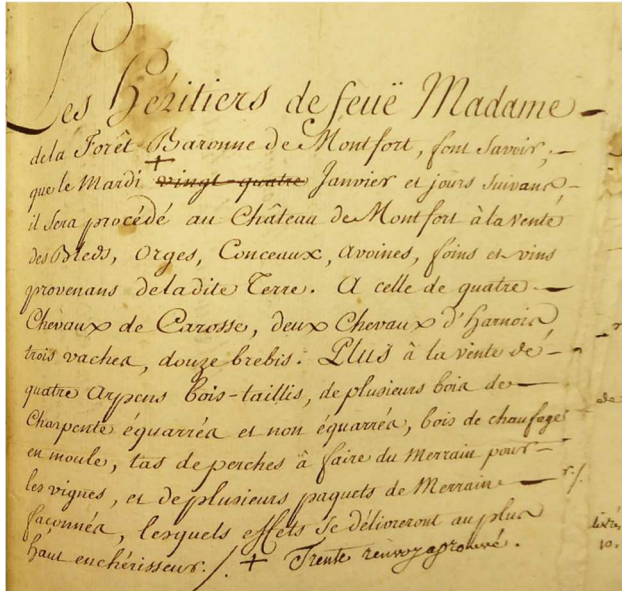 Les Héritiers de feuë Madame
dela Forêt Baronne de Montfort, font savoir,
que le Mardi + vingt-quatre Janvier et jours suivans
il sera procédé au Château de Montfort à la vente
des Bleds, orges, Conceaux, avoines, foins et vins
provenans deladite Terre. A celle de quatre
Chevaux de Carosse, deux Chevaux d'harnois
trois vaches, douze brebis. Plus à la vente de
quatre arpens bois-taillis, de plusieurs bois de
Charpente équarrés et non équarrés, bois de chaufage
en moule, tas de perches à faire du Merrain pour
les vignes, et de plusieurs paquets de Merrain
façonnés, lesquels effets se délivreront au plus
haut enchérisseur. /. + Trente renvoy aprouvé.